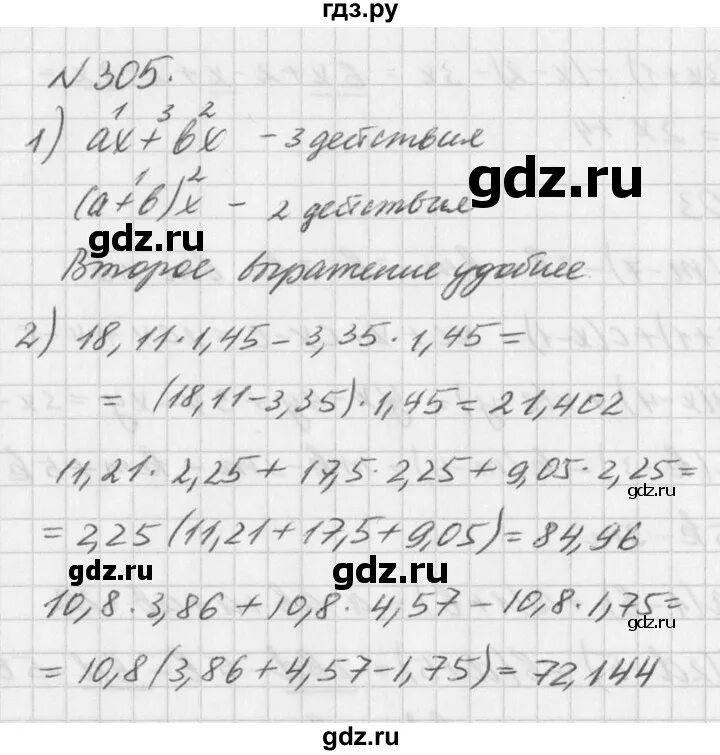 гдз.ру
N 305.
1) ax + bx - 3 действия
1 3 2
(a+b)x - 2 действия
1 2
gdz.ru
gdz.ru
Второе выражение удобнее.
2) 18,11·1,45 - 3,35·1,45 =
= (18,11-3,35)·1,45 = 21,402
11,21·2,25 + 17,5·2,25 + 9,05·2,25 =
gdz.ru
= 2,25(11,21+17,5+9,05) = 84,96
gdz.ru
gdz.ru
10,8·3,86 + 10,8·4,57 - 10,8·1,75 =
gdz.ru
= 10,8(3,86+4,57-1,75) = 72,144
gdz.ru